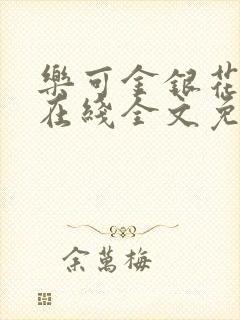 樂可金銀花
在綫全文免
余萬梅